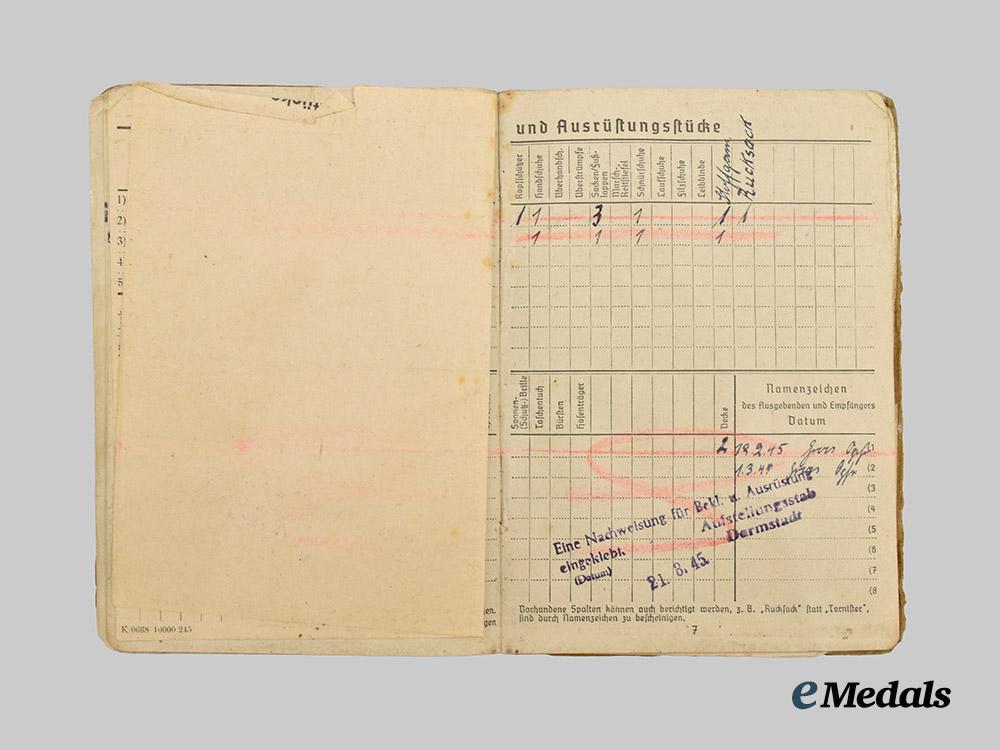 1)
2)
3)
4
5
K 0668 10000 245
und Ausrüstungsstücke
Kopfschützer
Handschuhe
Überhandsch.
Überstrümpfe
Socken/Fuß-
lappen
Marsch-
Reitstiefel
Schnürschuhe
Laufschuhe
Filzschuhe
Leibbinde
Rucksack
1 1 3 1 1 1
1 1 1 1
Sonnen-
(Schutz-) Brille
Taschentuch
Bürsten
Hosenträger
Decke
Namenzeichen
des Ausgebenden und Empfängers
Datum
2 18.2.45 (1
1.3.45 (2
(3
(4
(5
(6
(7
(8
Eine Nachweisung für Bekl. u. Ausrüstung
eingeklebt. Aufstellungsstab
(Datum) Darmstadt
21. 3. 45.
gen.
gen
Vorhandene Spalten können auch berichtigt werden, z. B. „Rucksack" statt „Tornister",
sind durch Namenzeichen zu bescheinigen.
7
eMedals